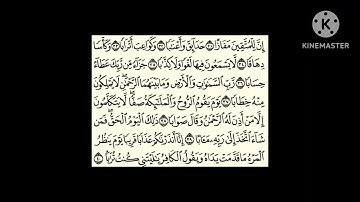 KINEMASTER
إِنَّ لِلْمُتَّقِينَ مَفَازًا ٣١ حَدَآئِقَ وَأَعْنَٰبًا ٣٢ وَكَوَاعِبَ أَتْرَابًا ٣٣ وَكَأْسًا
دِهَاقًا ٣٤ لَّا يَسْمَعُونَ فِيهَا لَغْوًا وَلَا كِذَّٰبًا ٣٥ جَزَآءً مِّن رَّبِّكَ عَطَآءً
حِسَابًا ٣٦ رَّبِّ ٱلسَّمَٰوَٰتِ وَٱلْأَرْضِ وَمَا بَيْنَهُمَا ٱلرَّحْمَٰنِ ۖ لَا يَمْلِكُونَ
مِنْهُ خِطَابًا ٣٧ يَوْمَ يَقُومُ ٱلرُّوحُ وَٱلْمَلَٰٓئِكَةُ صَفًّا ۖ لَّا يَتَكَلَّمُونَ
إِلَّا مَنْ أَذِنَ لَهُ ٱلرَّحْمَٰنُ وَقَالَ صَوَابًا ٣٨ ذَٰلِكَ ٱلْيَوْمُ ٱلْحَقُّ ۖ فَمَن
شَآءَ ٱتَّخَذَ إِلَىٰ رَبِّهِۦ مَـَٔابًا ٣٩ إِنَّآ أَنذَرْنَٰكُمْ عَذَابًا قَرِيبًا يَوْمَ يَنظُرُ
ٱلْمَرْءُ مَا قَدَّمَتْ يَدَاهُ وَيَقُولُ ٱلْكَافِرُ يَٰلَيْتَنِى كُنتُ تُرَٰبًۢا ٤٠